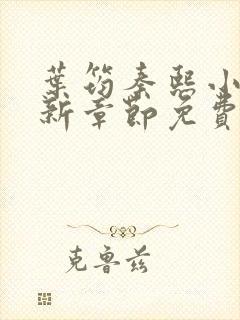 葉筠秦熙小
新章節免費
克魯茲